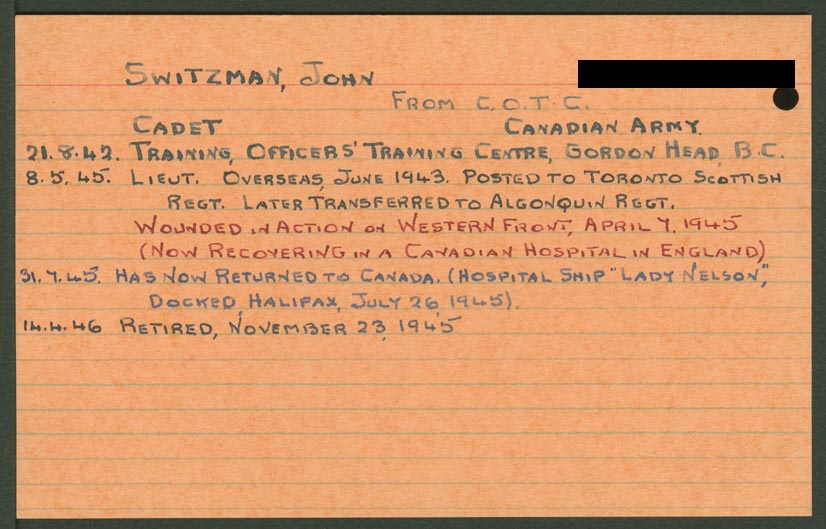 SWITZMAN, JOHN
FROM C.O.T.C.
CADET CANADIAN ARMY.
21.8.42. TRAINING, OFFICERS' TRAINING CENTRE, GORDON HEAD, B.C.
8.5.45. LIEUT. OVERSEAS, JUNE 1943. POSTED TO TORONTO SCOTTISH
REGT. LATER TRANSFERRED TO ALGONQUIN REGT.
WOUNDED IN ACTION ON WESTERN FRONT, APRIL 7, 1945
(NOW RECOVERING IN A CANADIAN HOSPITAL IN ENGLAND)
31.7.45. HAS NOW RETURNED TO CANADA. (HOSPITAL SHIP "LADY NELSON",
DOCKED, HALIFAX, JULY 26, 1945).
14.4.46 RETIRED, NOVEMBER 23, 1945